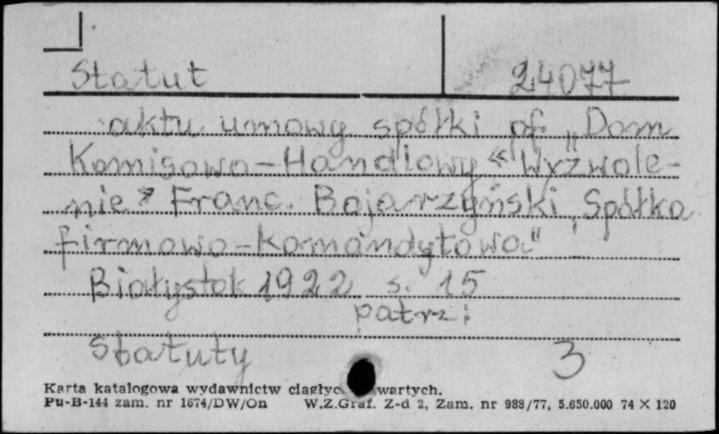 Statut 24077
aktu umowy spółki pf. „Dom
Komisowo-Handlowy «Wyzwole-
nie» Franc. Bojarzyński, Spółka
firmowo-komandytowa"
Białystok 1922 s. 15
patrz:
Statuty 3
Karta katalogowa wydawnictw ciągłyc wartych.
Pu-B-144 zam. nr 1674/DW/On W.Z.Graf. Z-d 2, Zam. nr 988/77, 5.650.000 74 × 120